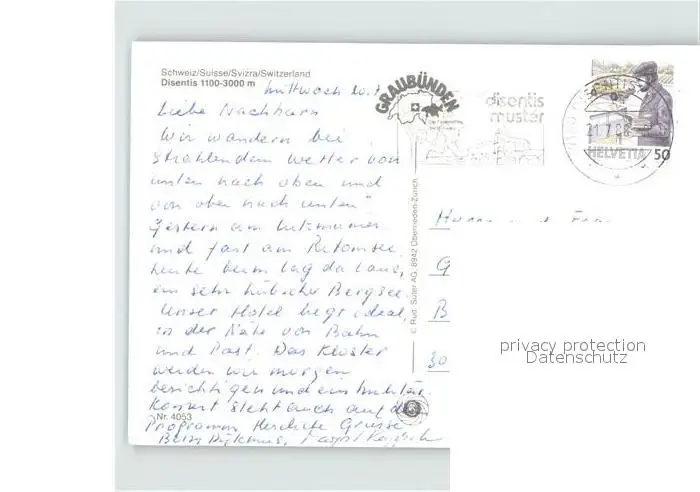 Schweiz/Suisse/Svizra/Switzerland
Disentis 1100-3000 m
Mittwoch
Liebe Nachbarn
Wir wandern bei
strahlendem Wetter von
unten nach oben und
von oben nach unten"
Gestern am Lukmanier
und fast am Ritomsee,
heute beim Lag da Laus,
ein sehr hübscher Bergsee.
Unser Hotel liegt ideal,
in der Nähe von Bahn
und Post. Das Kloster
werden wir morgen
besichtigen und ein
Konzert steht auch auf dem
Programm. Herzliche Grüsse
Nr. 4053
© Rud. Suter AG, 8942 Oberrieden-Zürich
GRAUBÜNDEN
disentis
muster
HELVETIA 50
G
B
30
privacy protection
Datenschutz